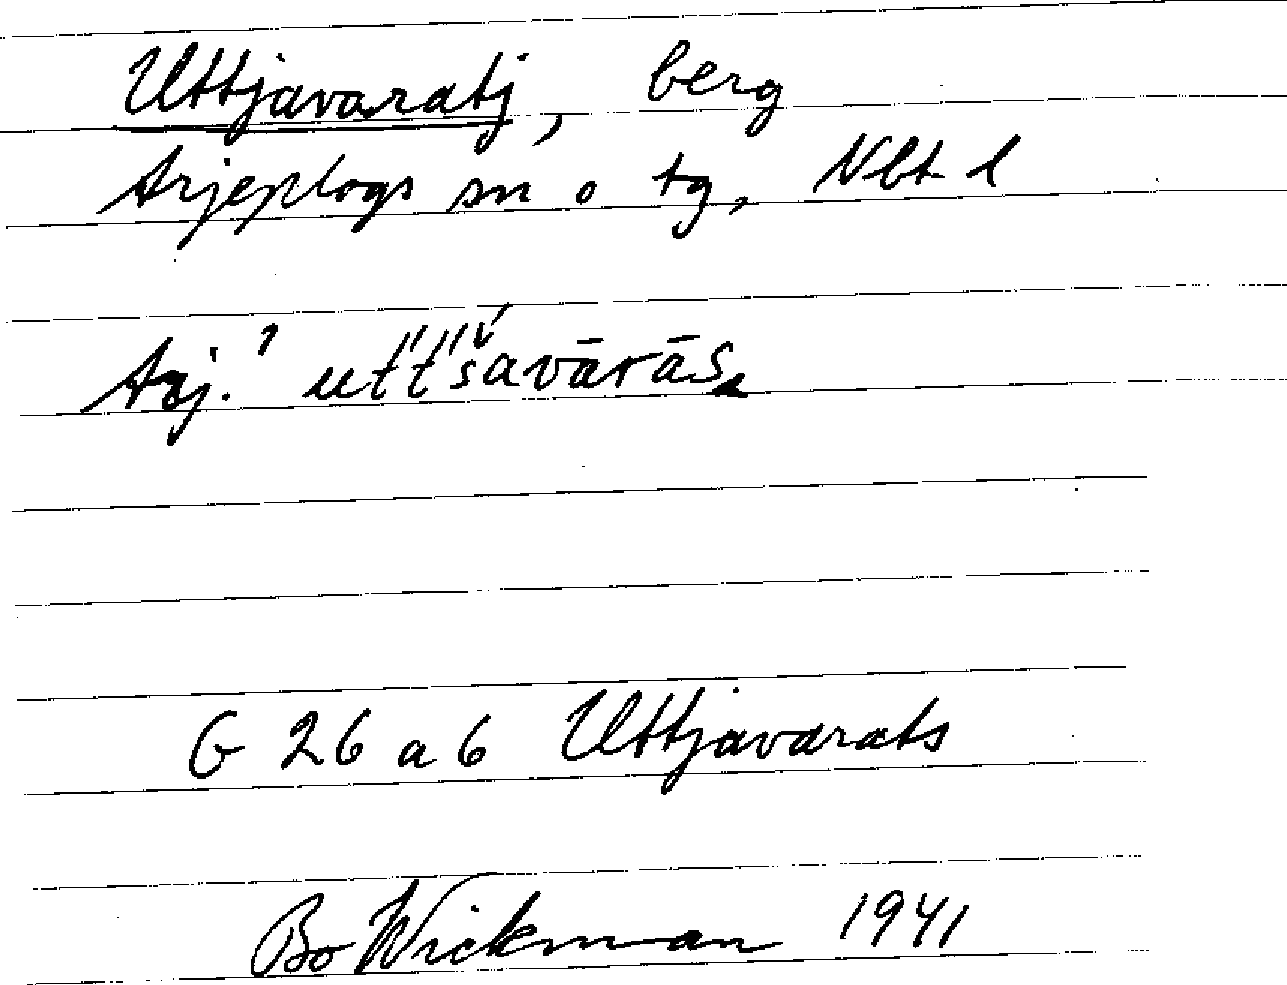 Uttjavaratj, berg
Arjeplogs sn o tg, Nbt l
Arj.
G 26 a 6 Uttjavarats
Bo Wickman 1941